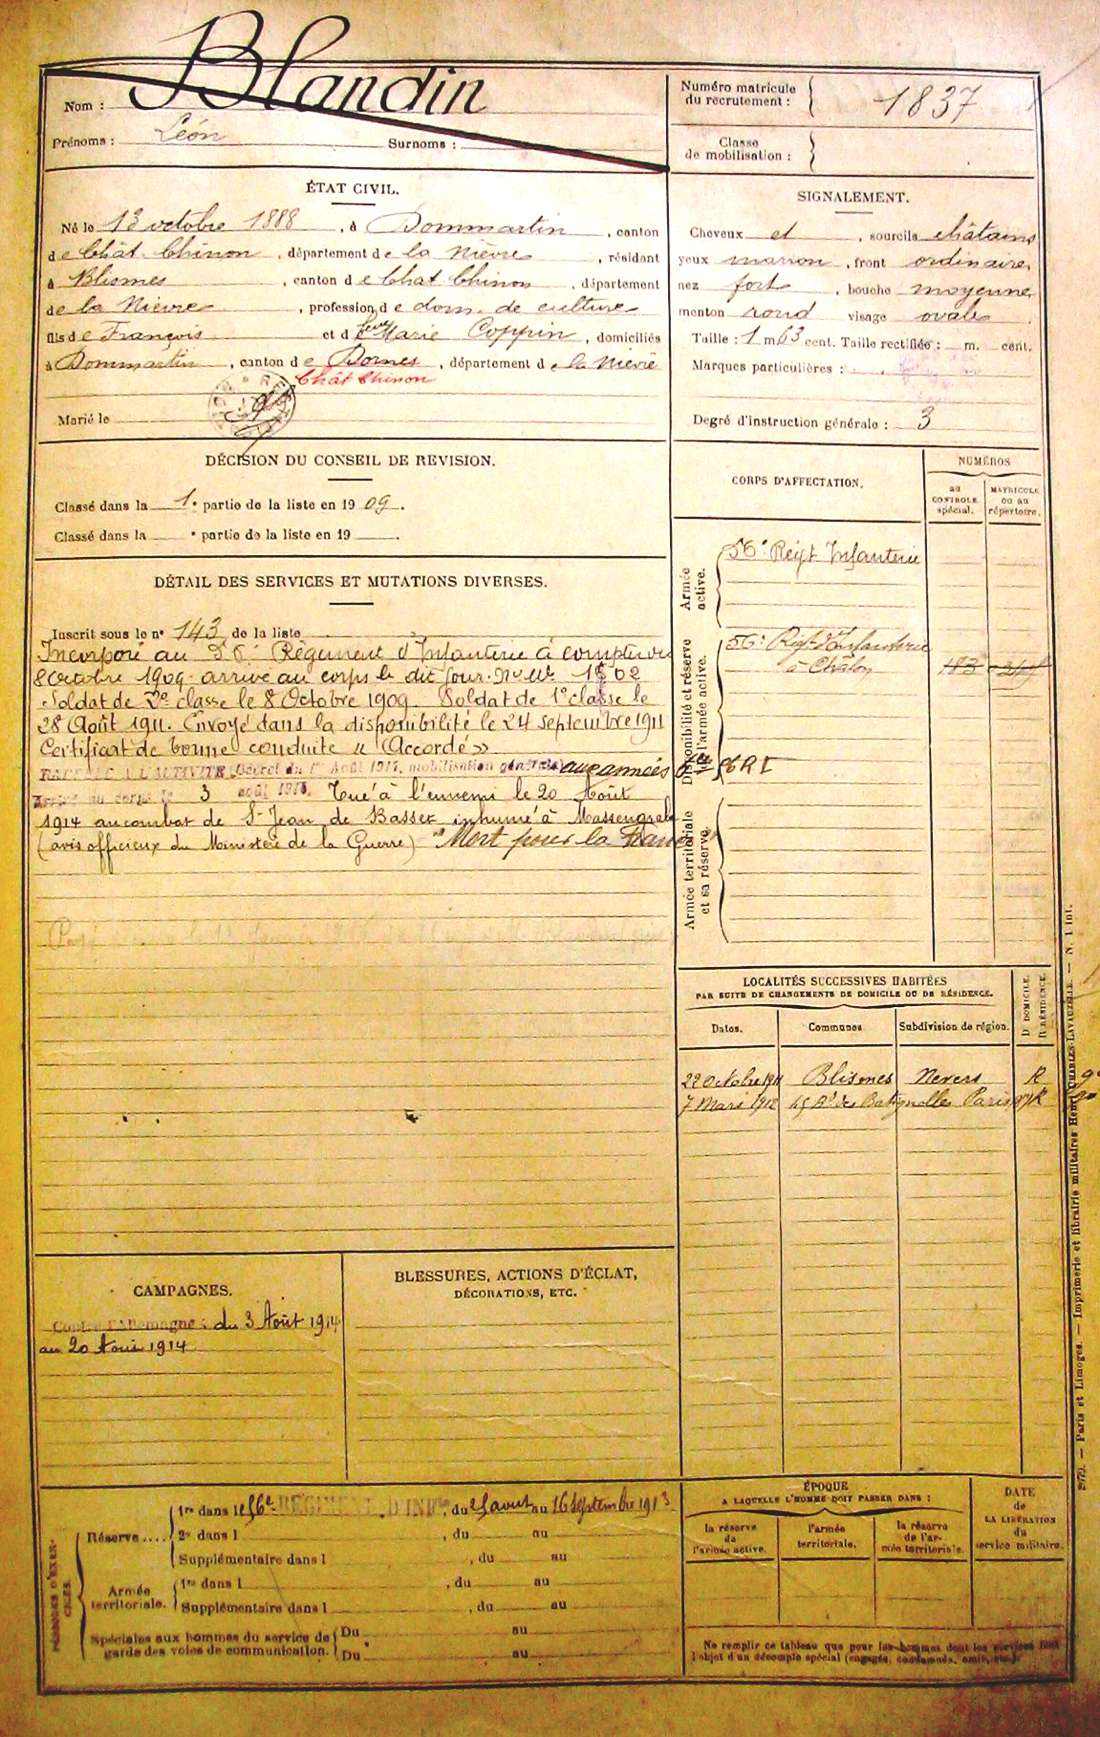 Nom : Blandin
Prénoms : Léon Surnoms :
Numéro matricule
du recrutement : 1837
Classe
de mobilisation :
ÉTAT CIVIL.
Né le 13 octobre 1888, à Dommartin, canton
de Chât-Chinon, département de la Nièvre, résidant
à Blismes, canton de Chat Chinon, département
de la Nièvre, profession de dom. de culture
fils de François et de feue Marie Coppin, domiciliés
à Dommartin, canton de Dornes, département de la Nièvre
Chât Chinon
Marié le
SIGNALEMENT.
Cheveux et, sourcils châtains
yeux marron, front ordinaire,
nez fort, bouche moyenne,
menton rond visage ovale.
Taille : 1 m 63 cent. Taille rectifiée : m. cent.
Marques particulières :
Degré d'instruction générale : 3
DÉCISION DU CONSEIL DE REVISION.
Classé dans la 1e partie de la liste en 1909.
Classé dans la e partie de la liste en 19
DÉTAIL DES SERVICES ET MUTATIONS DIVERSES.
Inscrit sous le no 143 de la liste
Incorporé au 56e Régiment d'Infanterie à compter du
8 Octobre 1909 arrivé au corps le dit jour. No Mle
Soldat de 2e classe le 8 Octobre 1909 Soldat de 1e classe le
28 Août 1911. Envoyé dans la disponibilité le 24 septembre 1911
Certificat de bonne conduite « Accordé »
RAPPELÉ A L'ACTIVITÉ (Décret du 1er Août 1914, mobilisation générale) aux armées
Arrivé au corps le 3 août 1914. Tué à l'ennemi le 20 Août
1914 au combat de St Jean de Basset inhumé à
(avis officieux du Ministère de la Guerre) "Mort pour la France
CORPS D'AFFECTATION.
NUMÉROS
au
CONTROLE
spécial.
MATRICULE
ou au
répertoire.
Armée
active.
56e Regt Infanterie
Disponibilité et réserve
de l'armée active.
56e Regt d'Infanterie
à Chalon
56 R I
Armée territoriale
et sa réserve.
LOCALITÉS SUCCESSIVES HABITÉES
PAR SUITE DE CHANGEMENTS DE DOMICILE OU DE RÉSIDENCE.
Dates. Communes. Subdivision de région. D. DOMICILE. R. RÉSIDENCE.
22 Octobre 1911 Blismes Nevers R
7 Mars 1912 45 Bd des Batignolles Paris R
CAMPAGNES.
Contre l'Allemagne : du 3 Août 1914
au 20 Aout 1914
BLESSURES, ACTIONS D'ÉCLAT,
DÉCORATIONS, ETC.
PÉRIODES D'EXERCICES.
Réserve....
1re dans le 56e RÉGIMENT D'INFie, du 25 aout au 16 Septembre 1913
2e dans l, du au
Supplémentaire dans l, du au
Armée
territoriale.
1re dans l, du au
Supplémentaire dans l, du au
Spéciales aux hommes du service de
garde des voies de communication.
Du au
Du au
ÉPOQUE
A LAQUELLE L'HOMME DOIT PASSER DANS :
la réserve
de
l'armée active.
l'armée
territoriale.
la réserve
de l'ar-
mée territoriale.
DATE
de
LA LIBÉRATION
du
service militaire.
Ne remplir ce tableau que pour les hommes dont les services font
l'objet d'un décompte spécial (engagés, condamnés, omis, etc.)
— Paris et Limoges. — Imprimerie et librairie militaires Henri CHARLES-LAVAUZELLE. — N. 1 int.